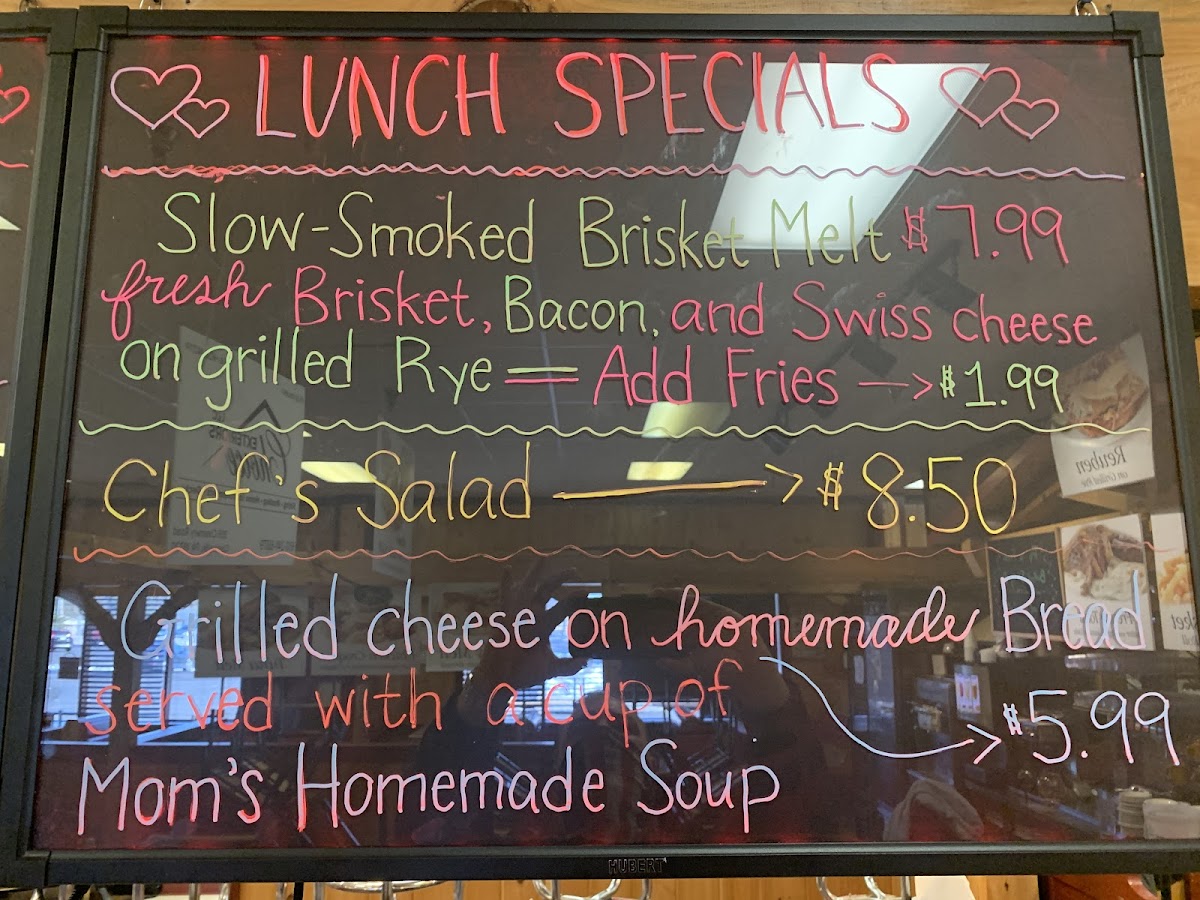 LUNCH SPECIALS
Slow-Smoked Brisket Melt $7.99
fresh Brisket, Bacon, and Swiss cheese
on grilled Rye = Add Fries → $1.99
Chef's Salad → $8.50
Grilled cheese on homemade Bread
served with a cup of
Mom's Homemade Soup → $5.99
HUBERT
Reuben